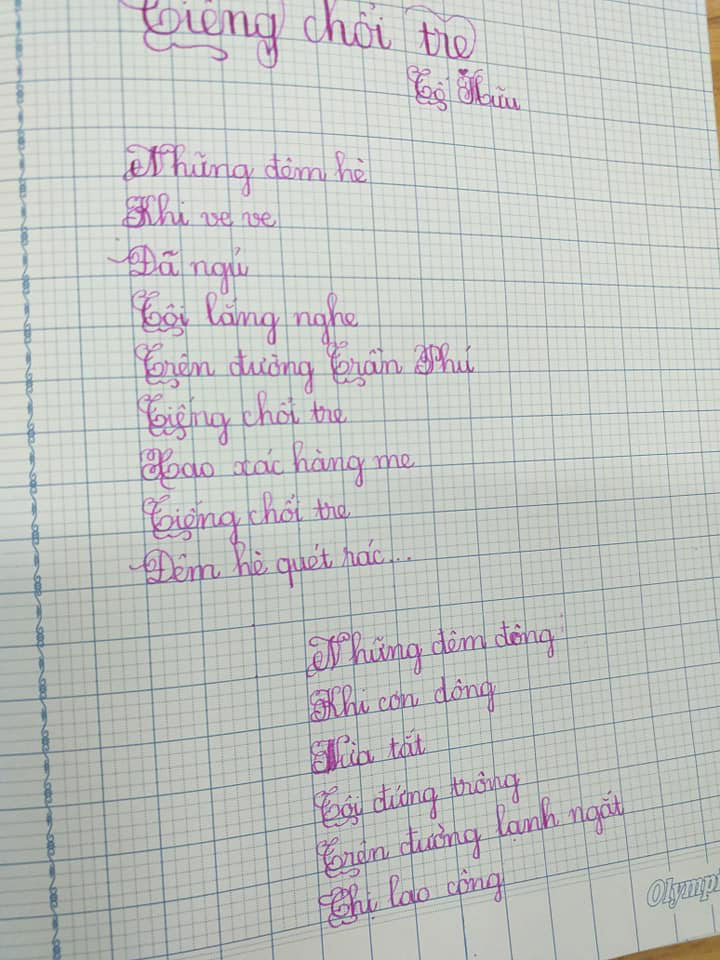 Tiếng chổi tre
Tố Hữu
Những đêm hè
Khi ve ve
Đã ngủ
Tôi lắng nghe
Trên đường Trần Phú
Tiếng chổi tre
Xao xác hàng me
Tiếng chổi tre
Đêm hè quét rác...
Những đêm đông
Khi cơn dông
Vừa tắt
Tôi đứng trông
Trên đường lạnh ngắt
Chị lao công
Olymp